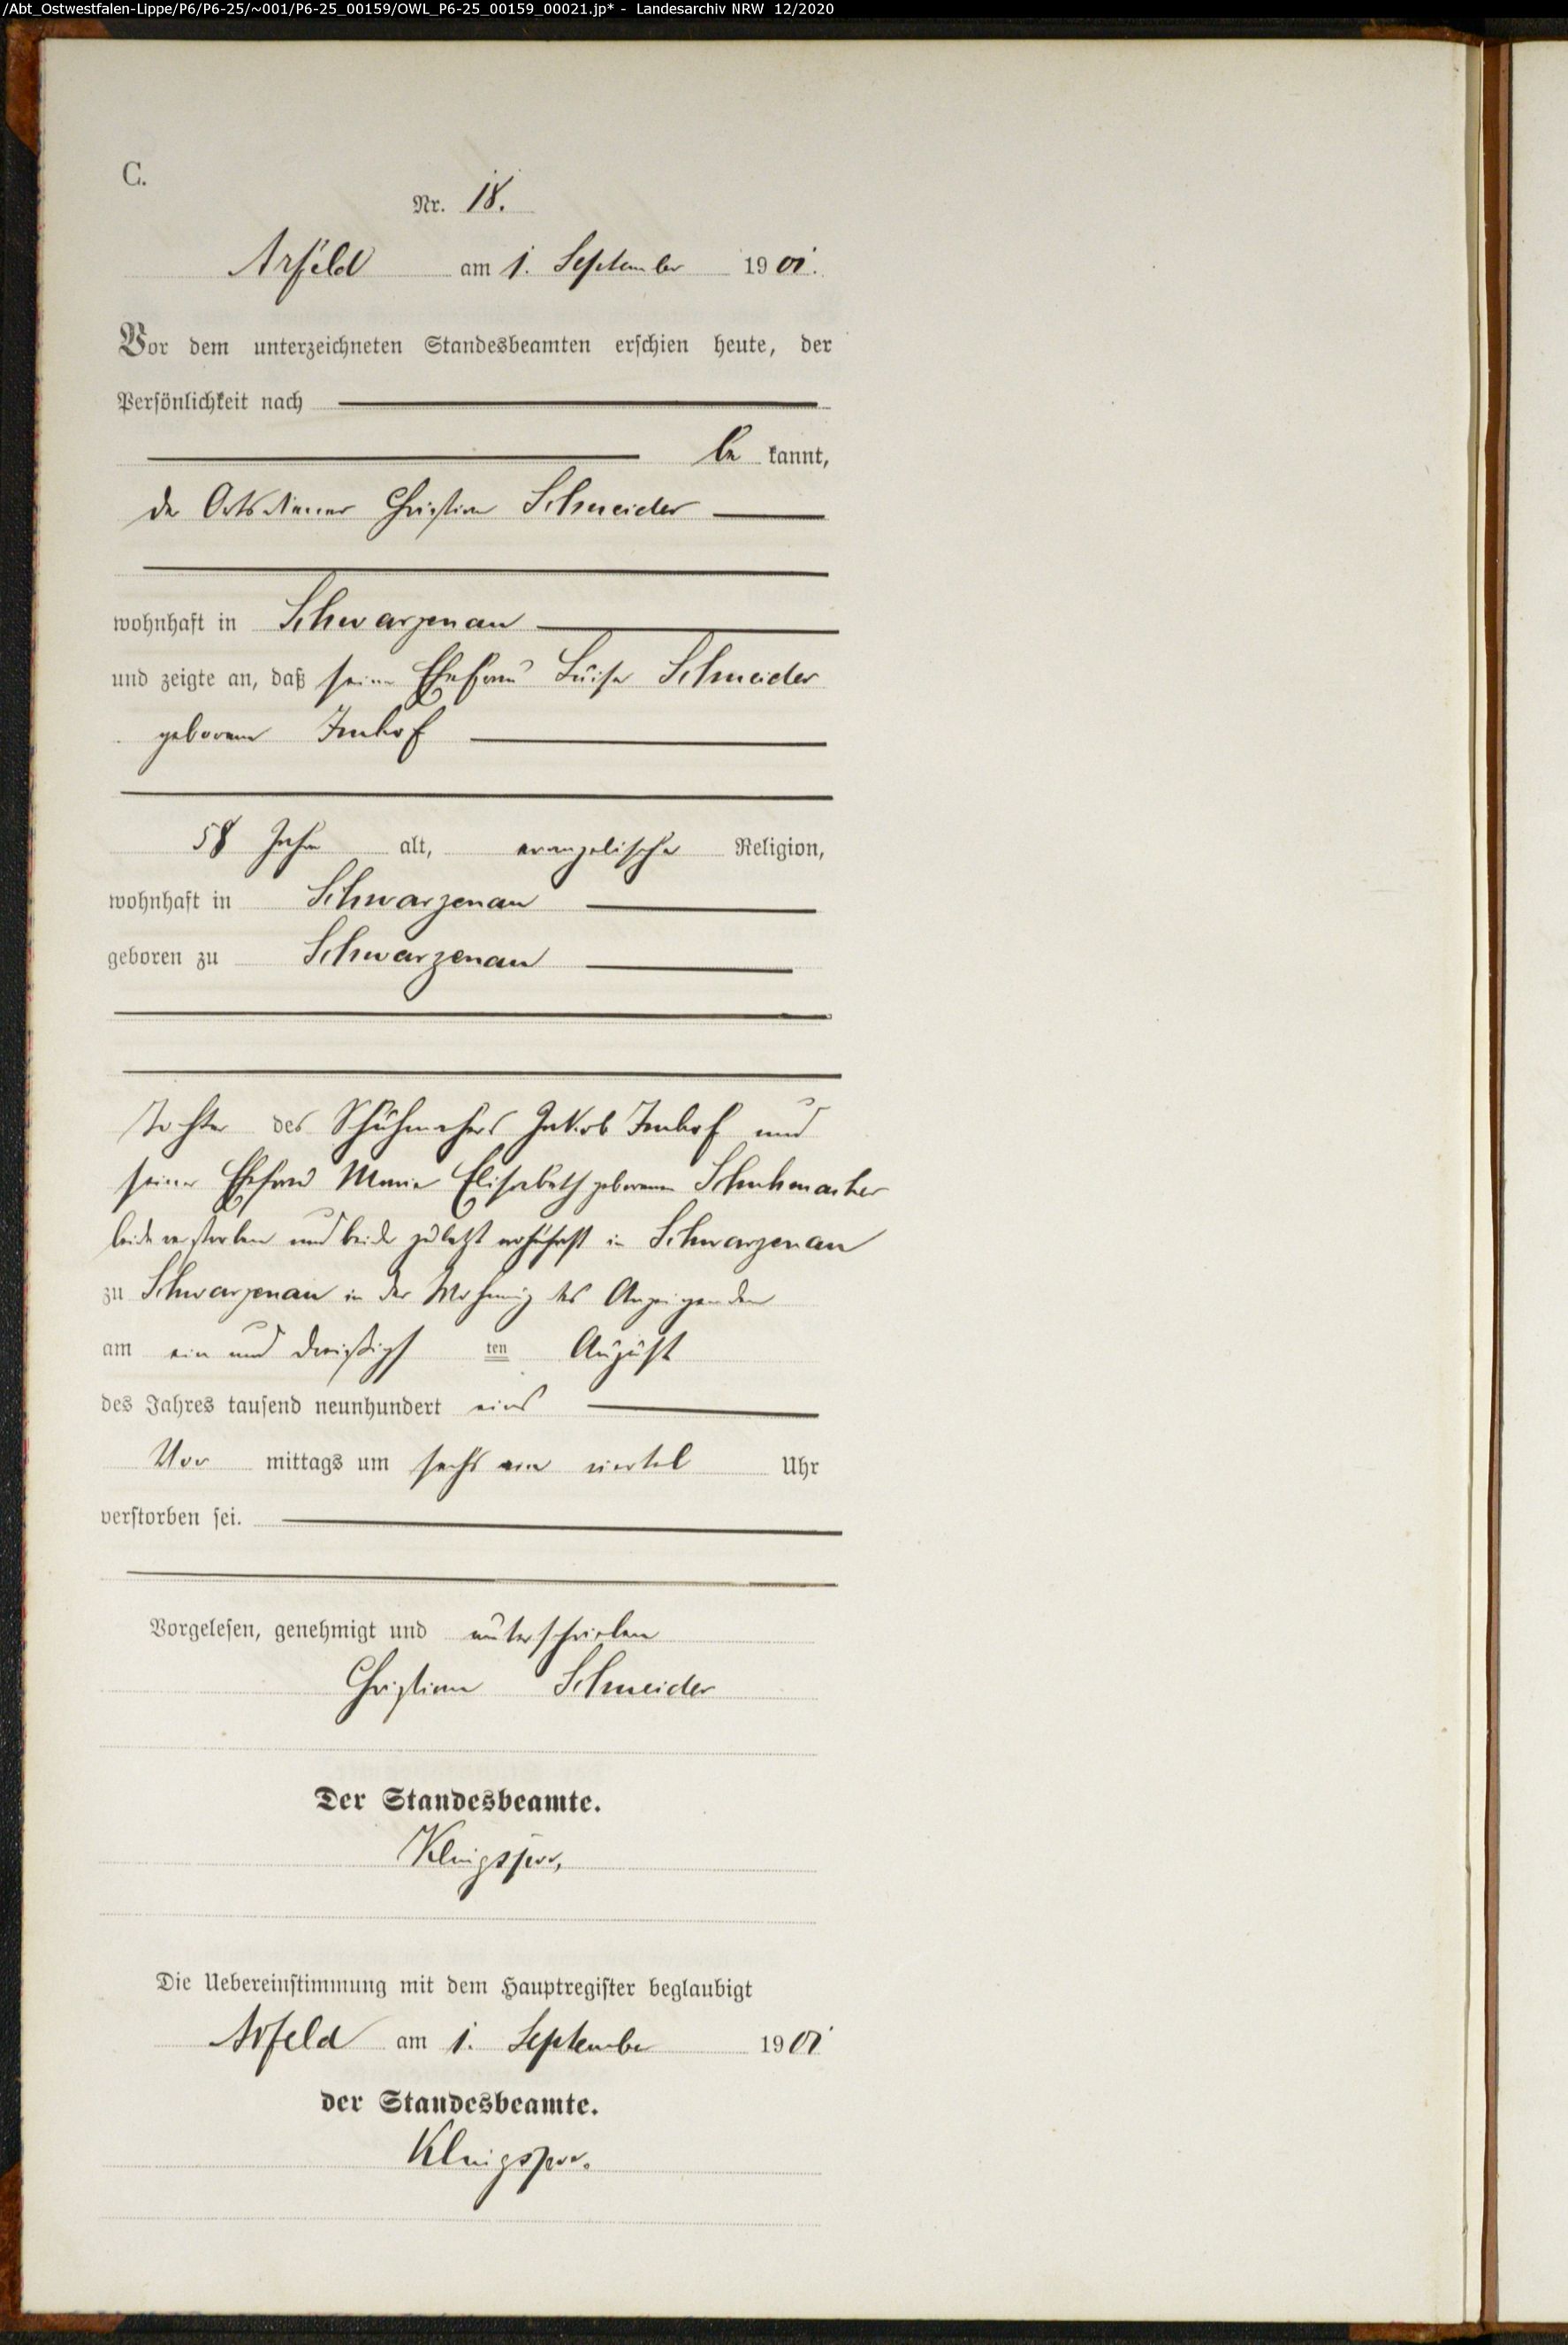 /Abt_Ostwestfalen-Lippe/P6/P6-25/~001/P6-25_00159/OWL_P6-25_00159_00021.jp* - Landesarchiv NRW 12/2020
C.
Nr. 18.
Arfeld am 1. September 1901.
Vor dem unterzeichneten Standesbeamten erschien heute, der
Persönlichkeit nach
be kannt,
der Ortsdiener Christian Schneider
wohnhaft in Schwarzenau
und zeigte an, daß seine Ehefrau Luise Schneider
geborene Imhof
58 Jahre alt, evangelischer Religion,
wohnhaft in Schwarzenau
geboren zu Schwarzenau
Tochter des Schuhmachers Jakob Imhof und
seiner Ehefrau Marie Elisabeth geborenen Schuhmacher
beide verstorben und beide zuletzt wohnhaft in Schwarzenau
zu Schwarzenau in der Wohnung des Anzeigenden
am ein und dreißigs ten August
des Jahres tausend neunhundert eins
Vor mittags um sechs ein viertel Uhr
verstorben sei.
Vorgelesen, genehmigt und unterschrieben
Christian Schneider
Der Standesbeamte.
Klingspor,
Die Uebereinstimmung mit dem Hauptregister beglaubigt
Arfeld am 1. September 1901
der Standesbeamte.
Klingspor.